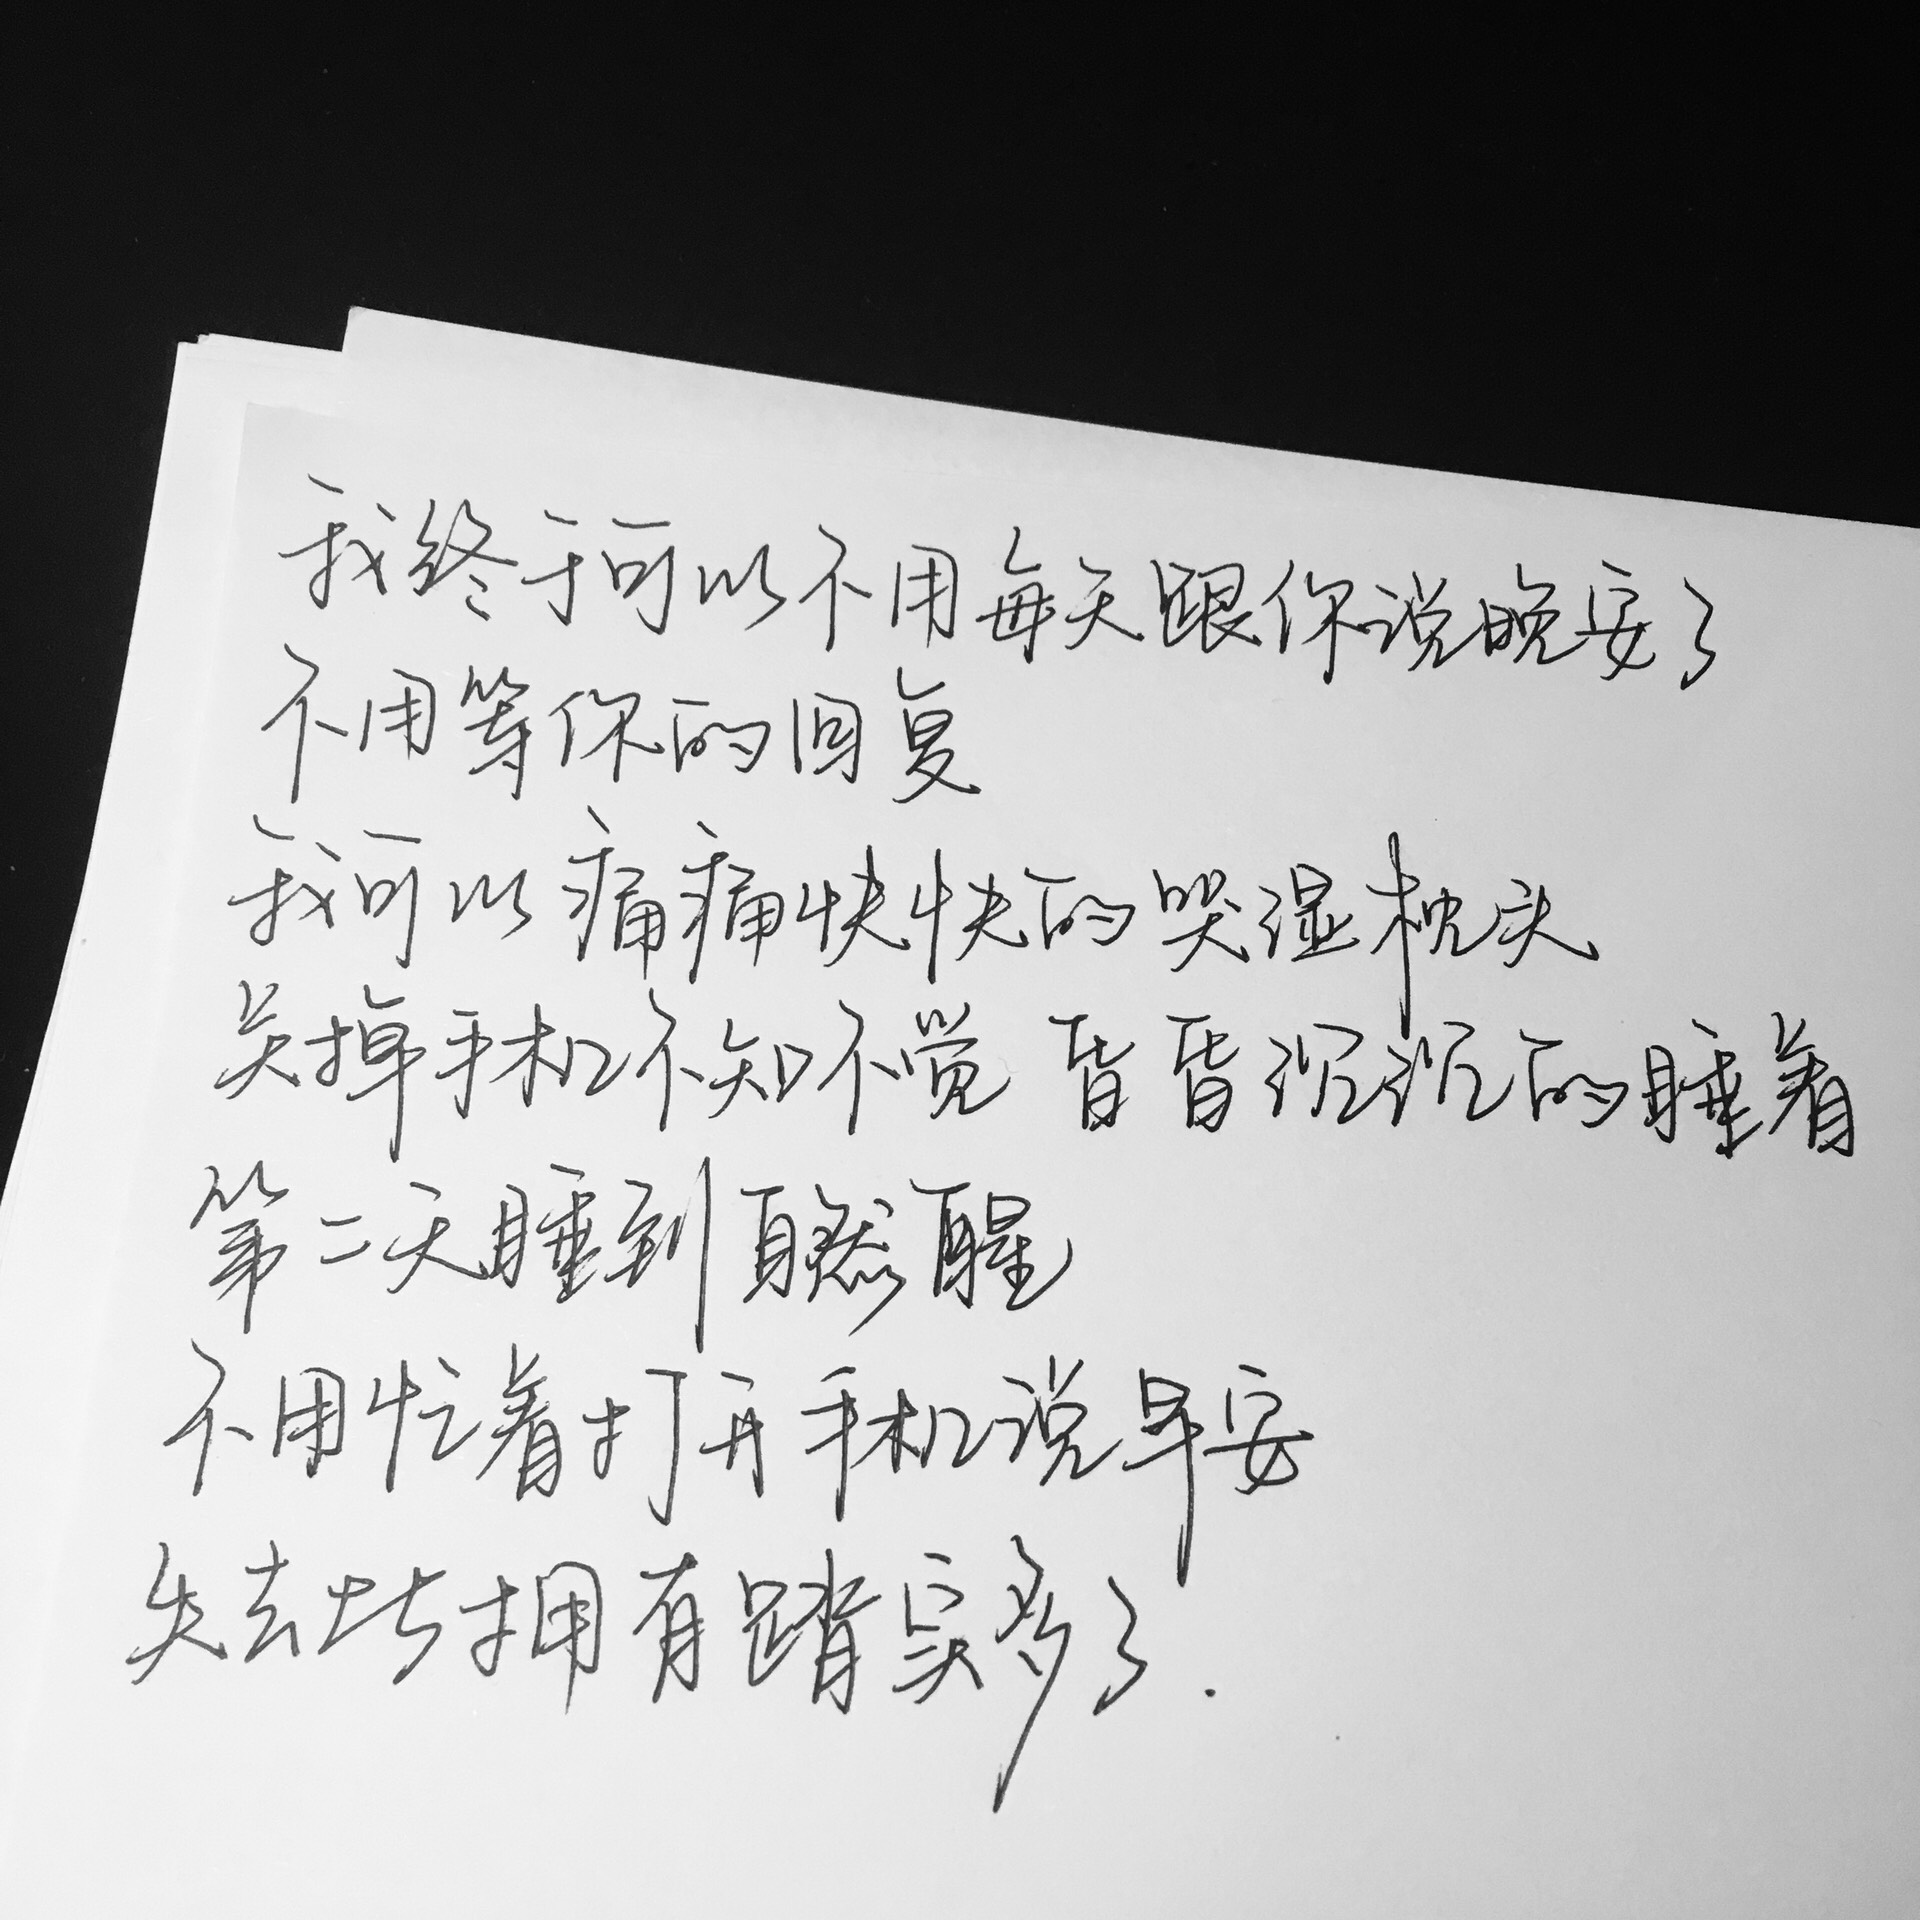 我终于可以不用每天跟你说晚安了
不用等你的回复
我可以痛痛快快的哭湿枕头
关掉手机不知不觉 昏昏沉沉的睡着
第二天睡到自然醒
不用忙着打开手机说早安
失去比拥有踏实多了.